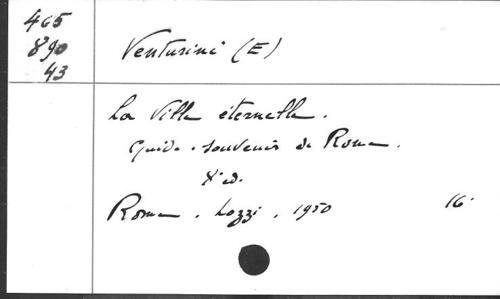 465
890
43
Venturini (E)
La Ville éternelle.
Guide-souvenir de Rome.
X ed.
Rome. Lozzi, 1950 16°